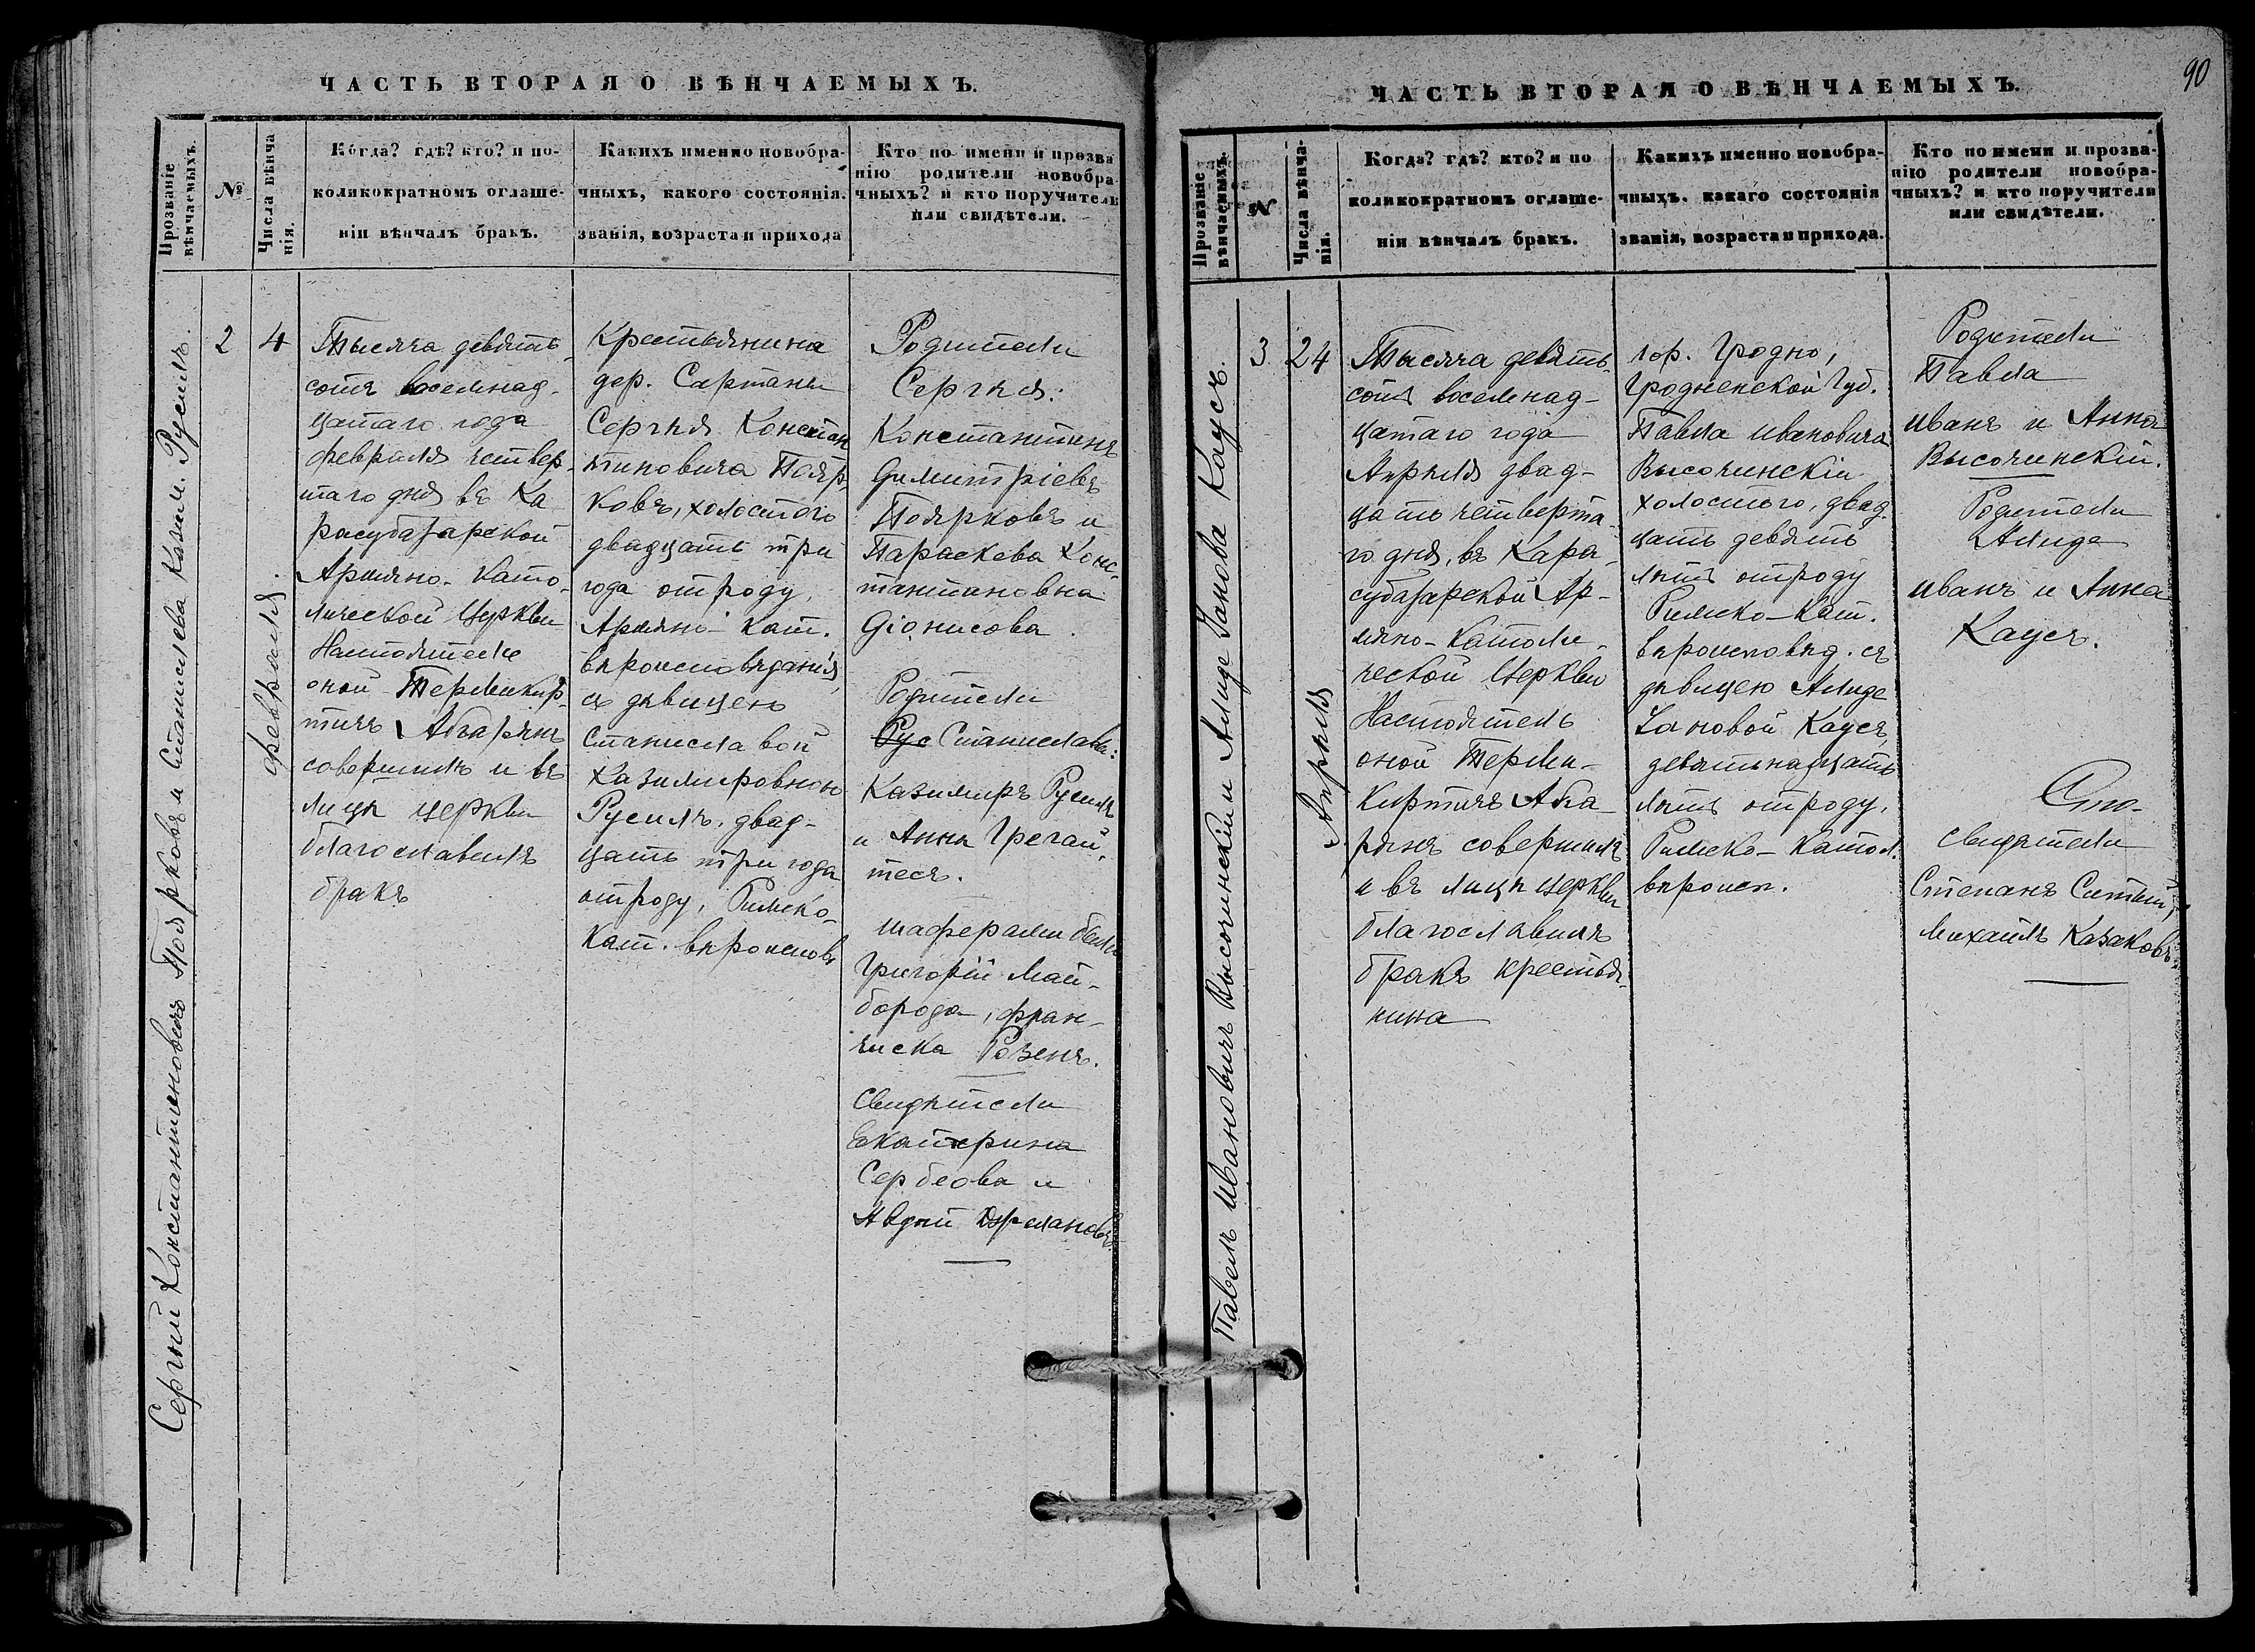 ЧАСТЬ ВТОРАЯ О ВѢНЧАЕМЫХЪ.
Прозваніе вѣнчаемыхъ.
№
Числа вѣнчанія.
Когда? гдѣ? кто? и по-
коликократномъ оглаше-
ніи вѣнчалъ бракъ.
Какихъ именно новобра-
чныхъ, какого состоянія.
званія, возраста и прихода
Кто по имени и прозва
нію родители новобра-
чныхъ? и кто поручители
или свидѣтели.
Сергѣй Константиновичъ Поярковъ и Станислава Казим. Русилъ.
2
4
февраля.
Тысяча девять-
сотъ восемнад-
цатаго года
февраля четвер-
таго дня въ Ка
расубазарской
Армяно-Като-
лической Церкви
Настоятель
оной Термикир-
тичъ Абгарянъ
совершилъ и въ
лицѣ церкви
благославилъ
бракъ
Крестьянина
дер. Сартаны
Сергѣя Констан
тиновича Пояр-
ковъ, холостого
двадцать три
года отроду,
Армяно-Кат.
вѣроисповѣданія,
съ дѣвицею
Станиславой
Казимировною
Русилъ, двад-
цать три года
отроду, Римско-
Кат. вѣроисповѣ
Родители
Сергѣя:
Константинъ
Димитріевъ
Поярковъ и
Параскева Конс-
тантановна
Діонисова.
Родители
Рус Станиславы:
Казимиръ Русилъ
и Анна Гречай-
тесъ.
шаферами были
Григорій Май-
борода, Фран-
чиска Розенъ.
Свидѣтели
Екатерина
Сербеова и
Авдѣй
90
ЧАСТЬ ВТОРАЯ О ВѢНЧАЕМЫХЪ.
Прозваніе вѣнчаемыхъ.
№
Числа вѣнча-
нія.
Когда? гдѣ? кто? и по
коликократномъ оглаше-
ніи вѣнчалъ бракъ.
Какихъ именно новобра-
чныхъ. какаго состоянія
званія, возраста и прихода.
Кто по имени и прозва-
нію родители новобра-
чныхъ? и кто поручители
или свидѣтели.
Павелъ Ивановичъ Высочинскій и Алиде Янова Каусъ.
3
24
Апрѣля
Тысяча девять-
сотъ восемнад-
цатаго года
Апрѣля двад-
цать четверта-
го дня, въ Кара-
субазарской Ар-
мяно-Католи-
ческой Церкви
Настоятель
оной Терми-
Киртичъ Абга-
рянъ совершилъ
и въ лицѣ церкви
благославилъ
бракъ крестья-
нина
гор. Гродно,
Гродненской Губ.
Павла Ивановича
Высочинскій
холостого, двад-
цать девять
лѣтъ отроду
Римско-Кат.
вѣроисповѣд. съ
дѣвицею Алиде
Яновой Каусъ,
девятьнадцать
лѣтъ отроду,
Римско-Катол.
вѣроисп.
Родители
Павла
Иванъ и Анна
Высочинскій.
Родители
Алиде
Иванъ и Анна
Каусъ.
Свидѣтели
Степанъ
Михаилъ Казаковъ.